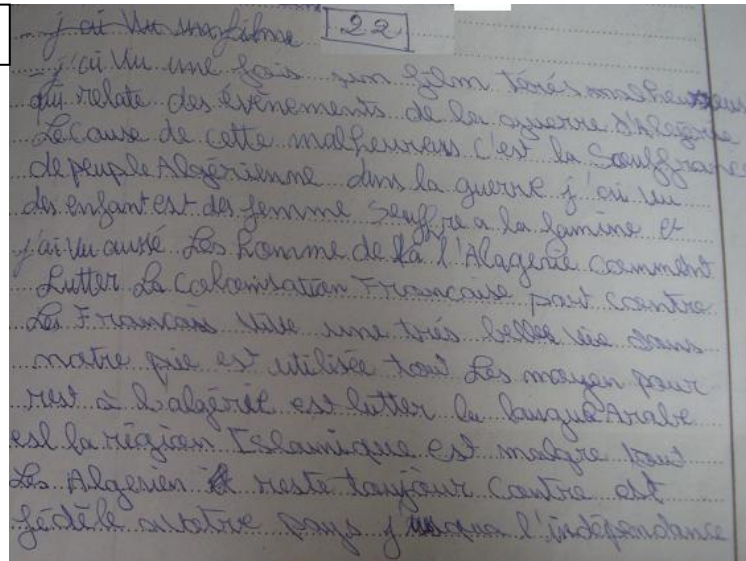 j'ai vu un filme 22
- j'ai vu une fois un film térés malheureus
qui relate des évènements de la guerre d'Alegérie
Le cause de cette malheureus c'est la souffrance
de peuple Algérienne dans la guerre j'ai vu
des enfant est des femme souffre a la famine et
j'ai vu aussé Les homme de l'Alagerie comment
Lutter La Colonisation Francause part contre
Les Francais vive une trés belle vie dans
notre pie est utilisée tout Les moyen pour
rest à l'algérie est lutter la langue Arabe
est la région Islamique est malgre tout
Les Algerien reste toujour contre est
fédèle a notre pays j'usqua l'indépendance